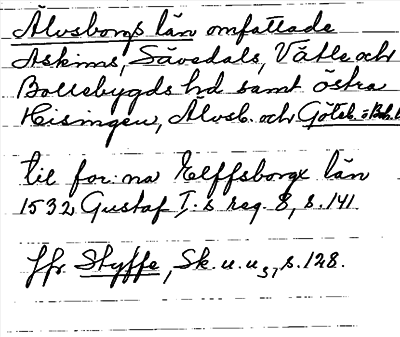 Älvsborgs län omfattade
Askims, Sävedals, Vätle och
Bollebygds hd samt östra
Hisingen, Älvsb. och Göteb. o Boh. l
til for:na Elffsborgx län
1532 Gustaf I:s reg. 8, s. 141.
Jfr. Styffe, Sk. u. u3, s. 128.